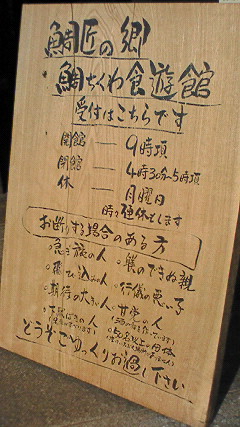 鯛匠の郷
鯛ちくわ食遊館
受付はこちらです
開館 ー 9時頃
閉館 ー 4時30分〜5時頃
休 ー 月曜日
時々連休とします
お断りする場合のある方
○急ぎ旅の人
○躾のできぬ親
○飛び込みの人
○行儀の悪い子
○期待の大きい人
○甘党の人
○下駄ばきの人
○50名以上の団体
どうぞごゆっくりお過し下さい